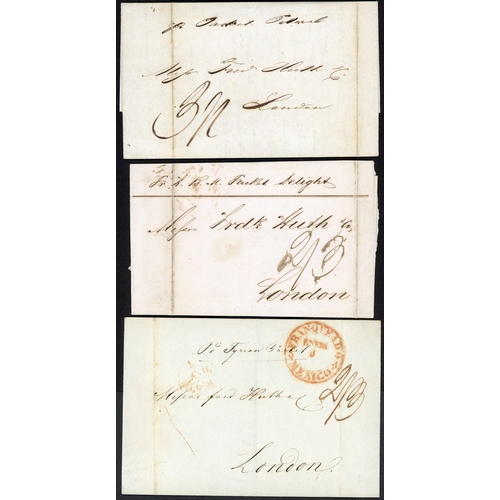 pr Packet Petrel
Messrs Fredk Huth & Co
3/1
London
Pr H. B. M. Packet Delight
Messrs Fredk Huth & Co
2/3
London
FRANQUEADO
MEXICO
Pr Tyrian Packet
Messrs fred Huth & Co
2/3
London.